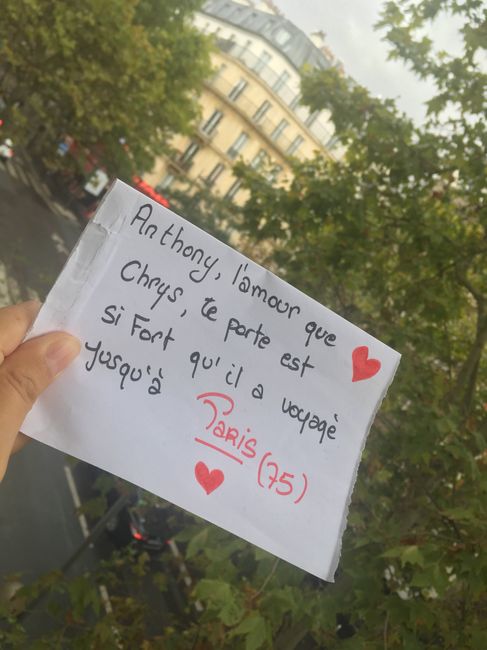 Anthony, l'amour que
Chrys, te porte est
si Fort qu'il a voyagè
jusqu'à
Paris (75)